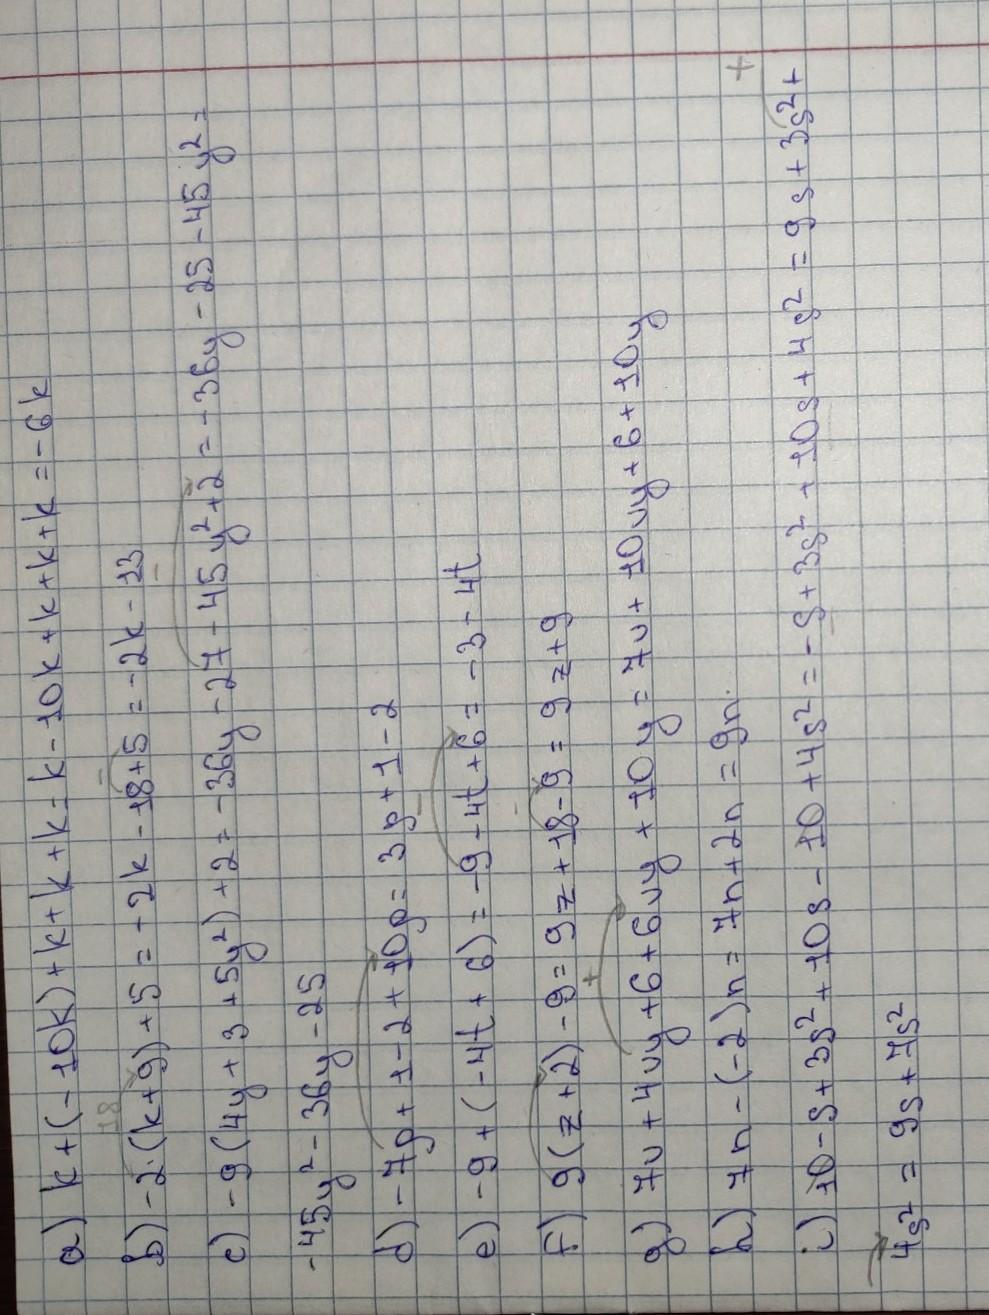 a) k+(-10k)+k+k+k=k-10k+k+k+k=-6k
18
b) -2·(k+9)+5=-2k-18+5=-2k-13
c) -9(4y+3+5y²)+2=-36y-27-45y²+2=-36y-25-45y²=
-45y²-36y-25
d) -7p+1-2+10p=3p+1-2
e) -9+(-4t+6)=-9-4t+6=-3-4t
f) 9(z+2)-9=9z+18-9=9z+9
+
g) 7v+4vy+6+6vy+10y=7v+10vy+6+10y
h) 7n-(-2)n=7n+2n=9n.
+
i) 10-s+3s²+10s-10+4s²=-s+3s²+10s+4s²=9s+3s²+
4s²=9s+7s²